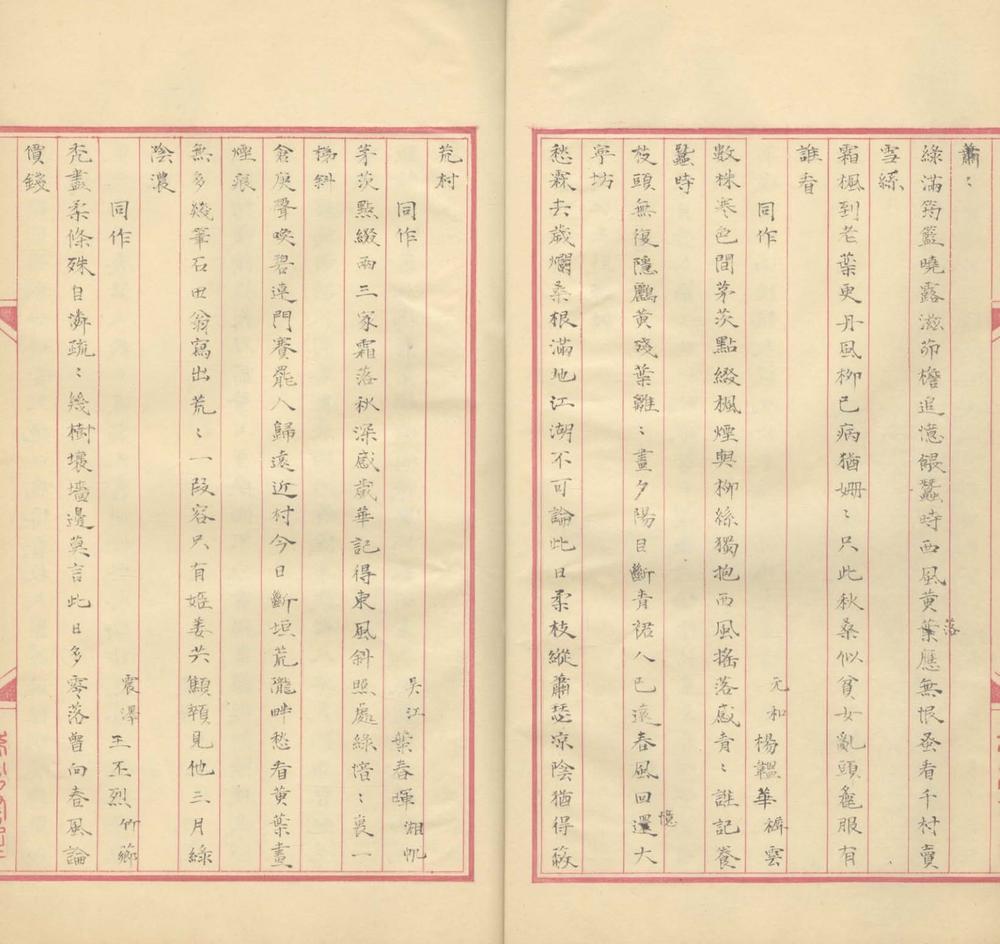 蕭〻
綠滿筠籃曉露滋茆檐追憶餵蠶時西風黃葉落應無恨蚤看千村賣
雪絲
霜楓到老葉更丹風柳已病猶姍〻只此秋桑似貧女亂頭麤服有
誰看
同作 元和楊韞華稱雲
數株寒色間茅茨點綴楓煙與柳絲獨抱西風搖落感青〻誰記養
蠶時
枝頭無復隱鸝黃殘葉離〻畫夕陽目斷青裙人已遠春風回憶大
寧坊
愁霖去歲爛桑根滿地江湖不可論此日柔枝縱蕭瑟凉陰猶得蔽
荒村
同作 吳江葉春暉湘帆
茅茨點綴兩三家霜落秋深感歲華記得東風斜照處綠陰〻裏一
梯斜
倉庚聲喚碧連門賽罷人歸遠近村今日斷垣荒隴畔愁看黃葉畫
煙痕
無多幾筆石田翁寫出荒〻一段容只有姬姜共顦顇見他三月綠
陰濃
同作 震澤王丕烈竹薌
禿盡柔條殊自憐疏〻幾樹壞墻邊莫言此日多零落曾向春風論
價錢